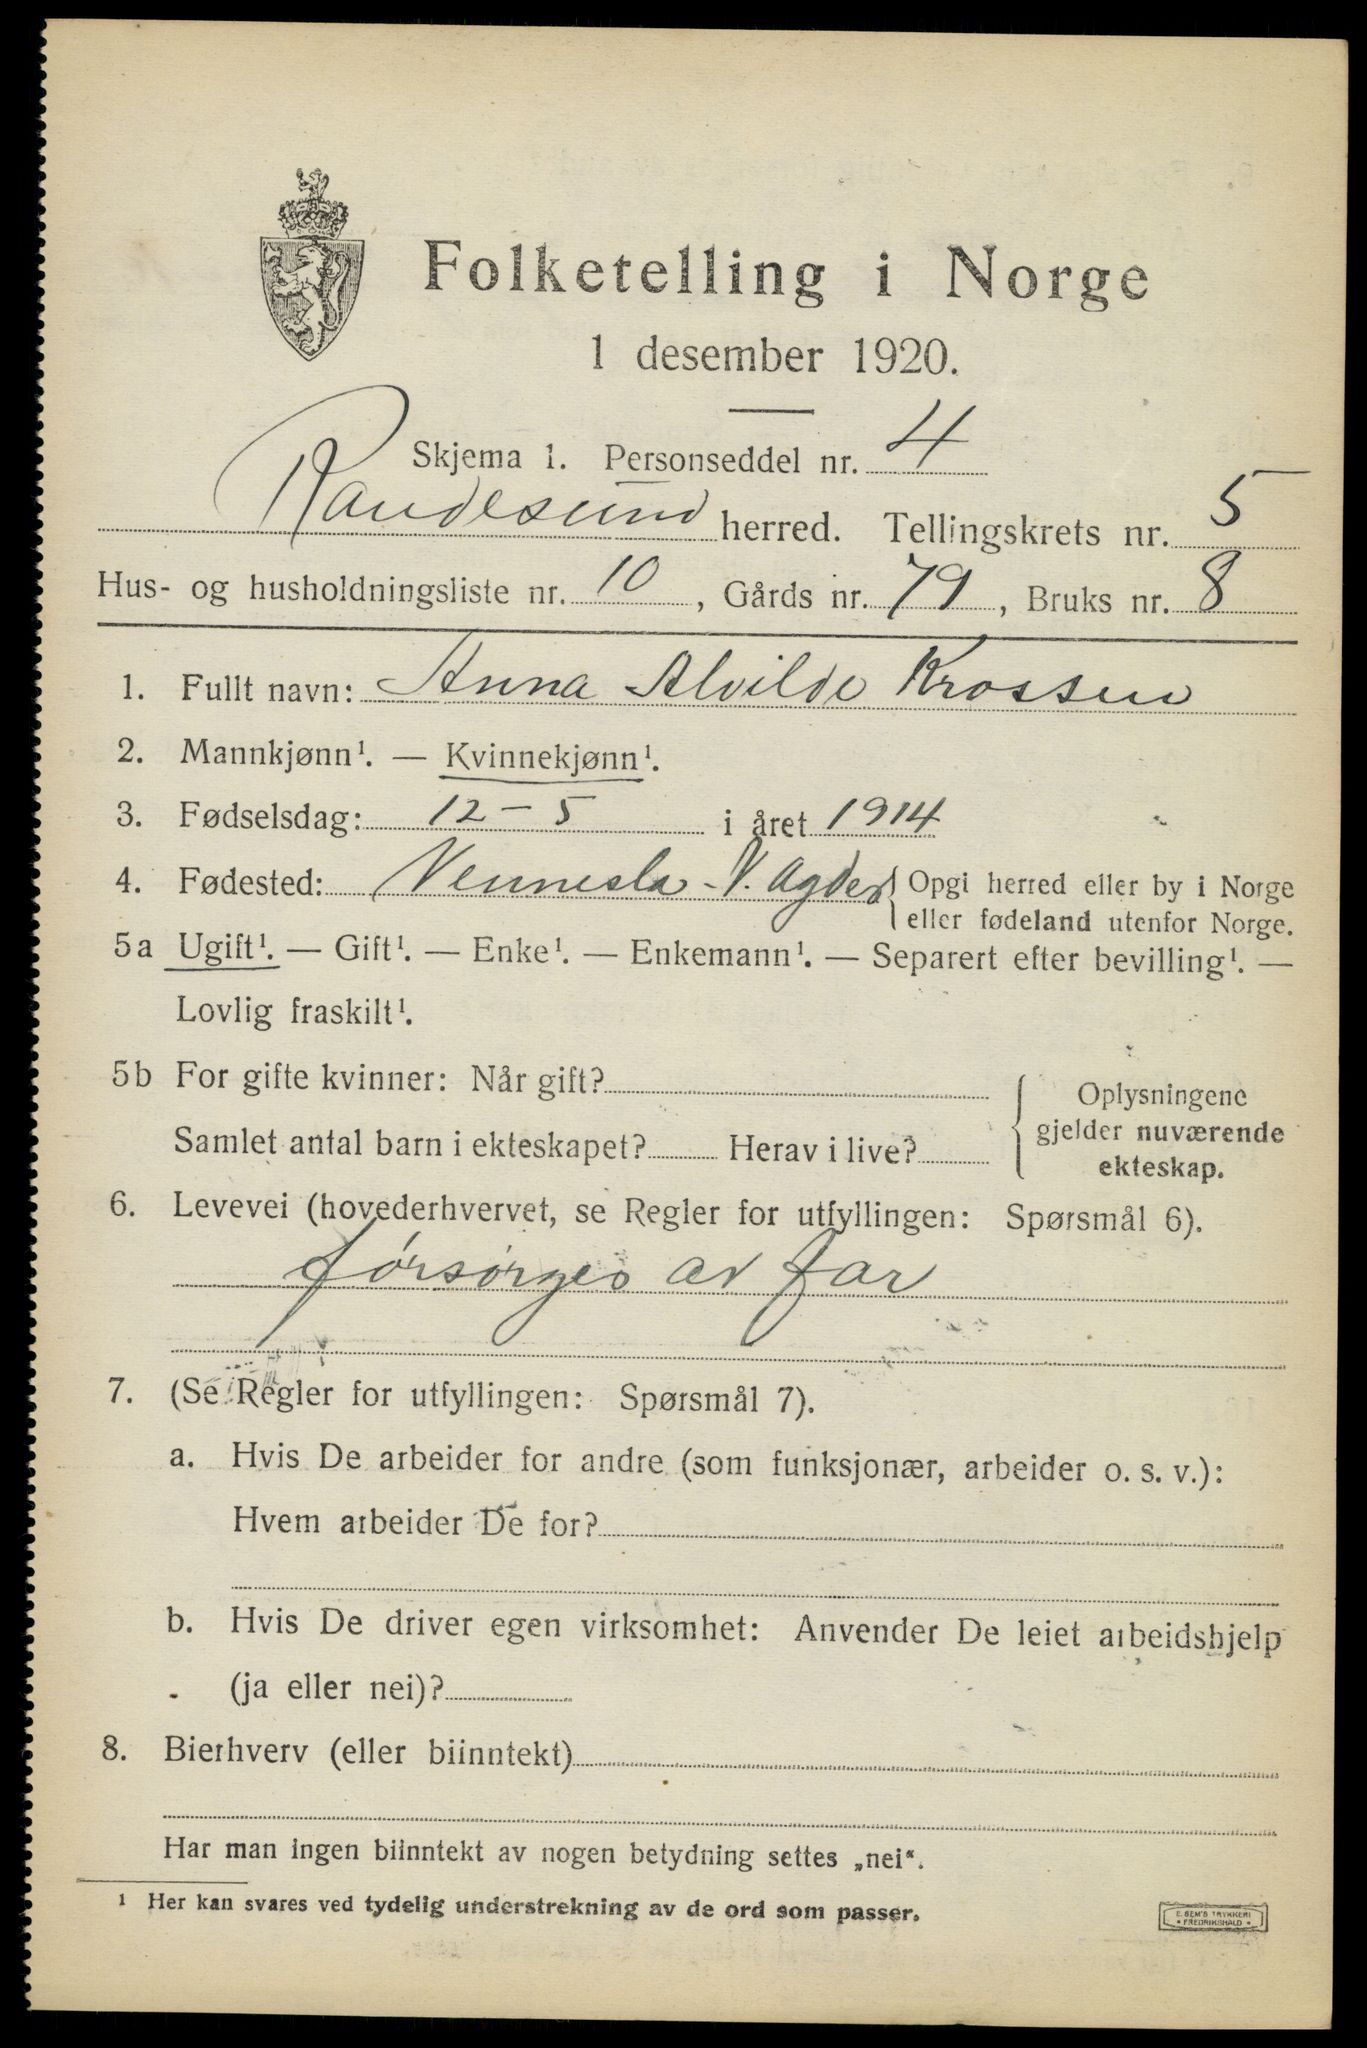 Folketelling i Norge
1 desember 1920.
Skjema 1. Personseddel nr. 4
Randesund herred. Tellingskrets nr. 5
Hus- og husholdningsliste nr. 10, Gårds nr. 79, Bruks nr. 8
1. Fullt navn: Anna Alvilde Krossen
2. Mannkjønn¹. — Kvinnekjønn¹.
3. Fødselsdag: 12-5 i året 1914
4. Fødested: Vennesla V. Agder { Opgi herred eller by i Norge
eller fødeland utenfor Norge.
5a Ugift¹. — Gift¹. — Enke¹. — Enkemann¹. — Separert efter bevilling¹. —
Lovlig fraskilt¹.
5b For gifte kvinner: Når gift?
Samlet antal barn i ekteskapet? Herav i live?
Oplysningene
gjelder nuværende
ekteskap.
6. Levevei (hovederhvervet, se Regler for utfyllingen: Spørsmål 6).
forsørges av far
7. (Se Regler for utfyllingen: Spørsmål 7).
a. Hvis De arbeider for andre (som funksjonær, arbeider o. s. v.):
Hvem arbeider De for?
b. Hvis De driver egen virksomhet: Anvender De leiet arbeidshjelp
(ja eller nei)?
8. Bierhverv (eller biinntekt)
Har man ingen biinntekt av nogen betydning settes „nei“.
¹ Her kan svares ved tydelig understrekning av de ord som passer.
E. SEM'S TRYKKERI
• FREDRIKSHALD •